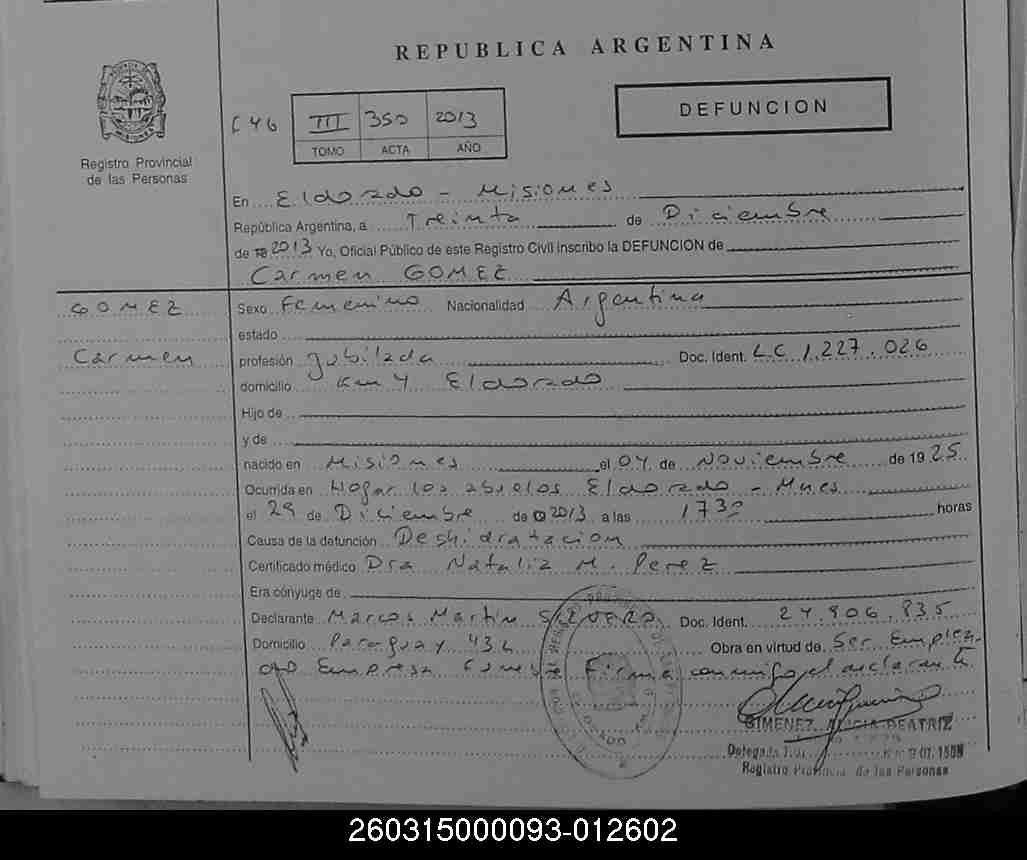 REPUBLICA ARGENTINA
DEFUNCION
C46 III 350 2013
TOMO ACTA AÑO
Registro Provincial
de las Personas
En Eldorado - Misiones
República Argentina, a Treinta de Diciembre
de 2013 Yo, Oficial Público de este Registro Civil inscribo la DEFUNCION de
Carmen GOMEZ
GOMEZ
Carmen
Sexo Femenino Nacionalidad Argentina
estado
profesión jubilada Doc. Ident. L.C 1.227.026
domicilio Km 4 Eldorado
Hijo de
y de
nacido en Misiones el 04 de Noviembre de 1925
Ocurrida en Hogar los abuelos Eldorado - Mnes
el 29 de Diciembre de 2013 a las 1730 horas
Causa de la defunción Deshidratacion
Certificado médico Dra Natalia M. Perez
Era cónyuge de
Declarante Marcos Martin Doc. Ident. 24.906.835
Domicilio Paraguay 432 Obra en virtud de Ser Emplea-
do Empresa Firma conmigo el declarante
GIMENEZ ALICIA BEATRIZ
Delegada
Registro Provincial de las Personas
260315000093-012602